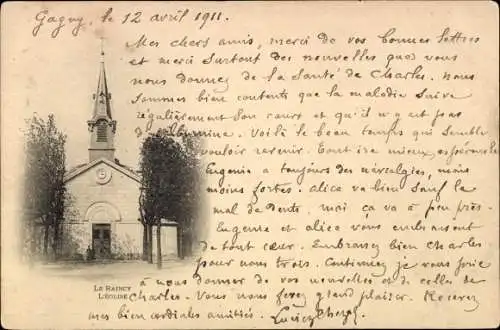 Gagny, le 12 avril 1911.
Mes chers amis, merci de vos bonnes lettres
et merci surtout des nouvelles que vous
nous donnez de la santé de Charles. Nous
sommes bien contents que la maladie suive
régulièrement son cours et qu'il n'y ait pas
d'albumine. Voilà le beau temps qui semble
vouloir revenir. Tout ira mieux, espérons-le
Eugénie a toujours des névralgies, mais
moins fortes. Alice va bien sauf le
mal de dents. Moi ça va à peu près.
Eugénie et Alice vous embrassent
de tout cœur. Embrassez bien Charles
pour nous trois. Continuez je vous prie à
nous donner de vos nouvelles et de celles de
Charles. Vous nous ferez grand plaisir. Recevez
mes bien cordiales amitiés.
LE RAINCY
L'ÉGLISE